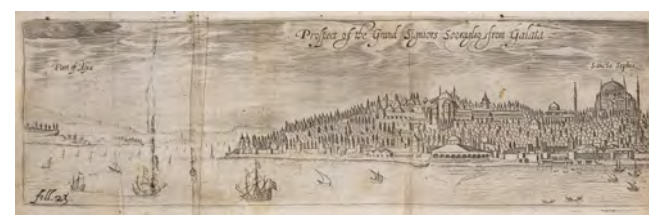 Prospect of the Grand Signiors Seraglio from Galata
Part of Asia
Sancta Sophia
foll. 23